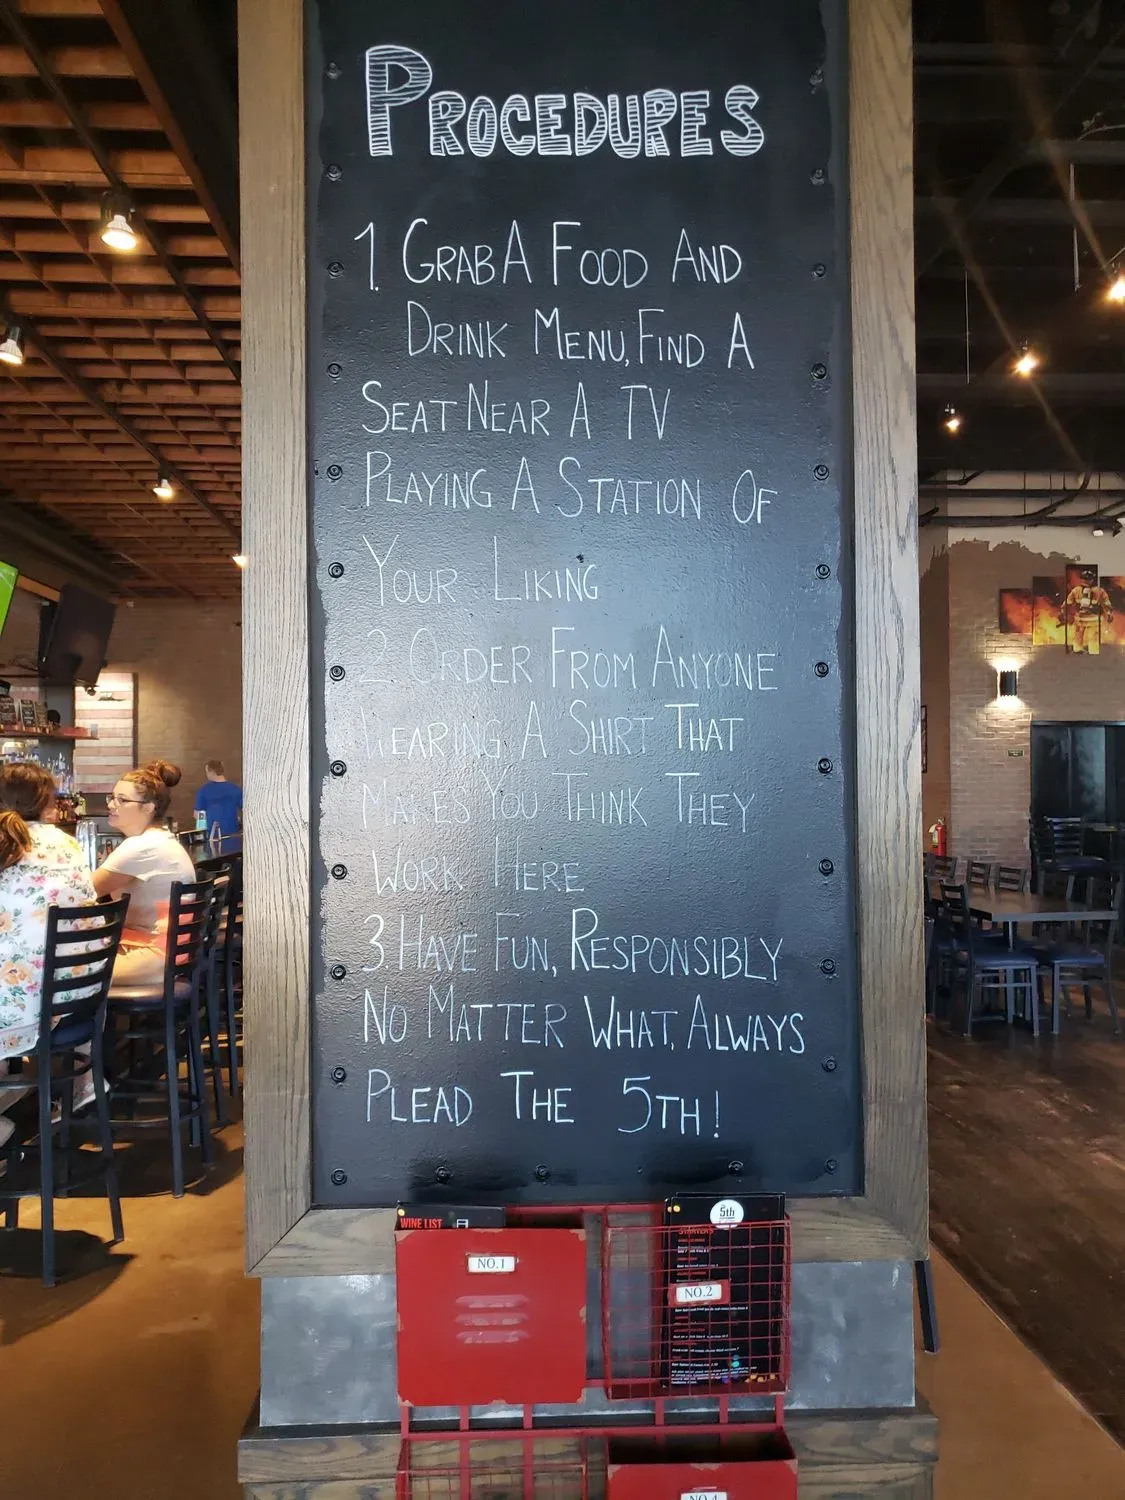 PROCEDURES
1. GRAB A FOOD AND
DRINK MENU, FIND A
SEAT NEAR A TV
PLAYING A STATION OF
YOUR LIKING
2 ORDER FROM ANYONE
WEARING A SHIRT THAT
MAKES YOU THINK THEY
WORK HERE
3. HAVE FUN, RESPONSIBLY
NO MATTER WHAT, ALWAYS
PLEAD THE 5TH!
WINE LIST
5th
STARTERS
NO.1
NO.2
NO.4